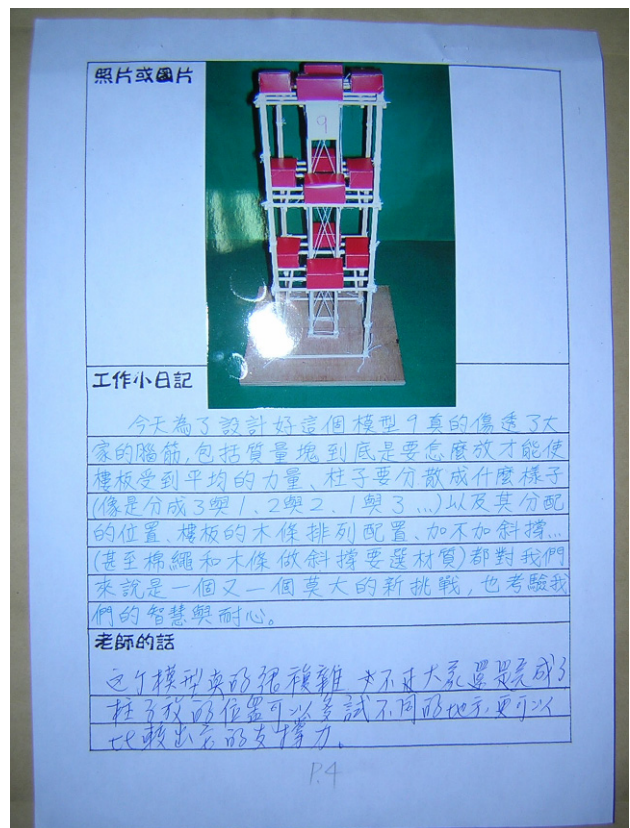 照片或圖片
9
工作小日記
今天為了設計好這個模型9真的傷透了大
家的腦筋,包括質量塊到底是要怎麼放才能使
樓板受到平均的力量、柱子要分散成什麼樣子
(像是分成3與1、2與2、1與3…)以及其分配
的位置、樓板的木條排列配置、加不加斜撐…
(甚至棉繩和木條做斜撐要選材質)都對我們
來說是一個又一個莫大的新挑戰,也考驗我
們的智慧與耐心。
老師的話
這个模型真的很複雜 不过大家還是完成了
柱子放的位置可以多試不同的地方,更可以
比較出它的支撐力。
P.4